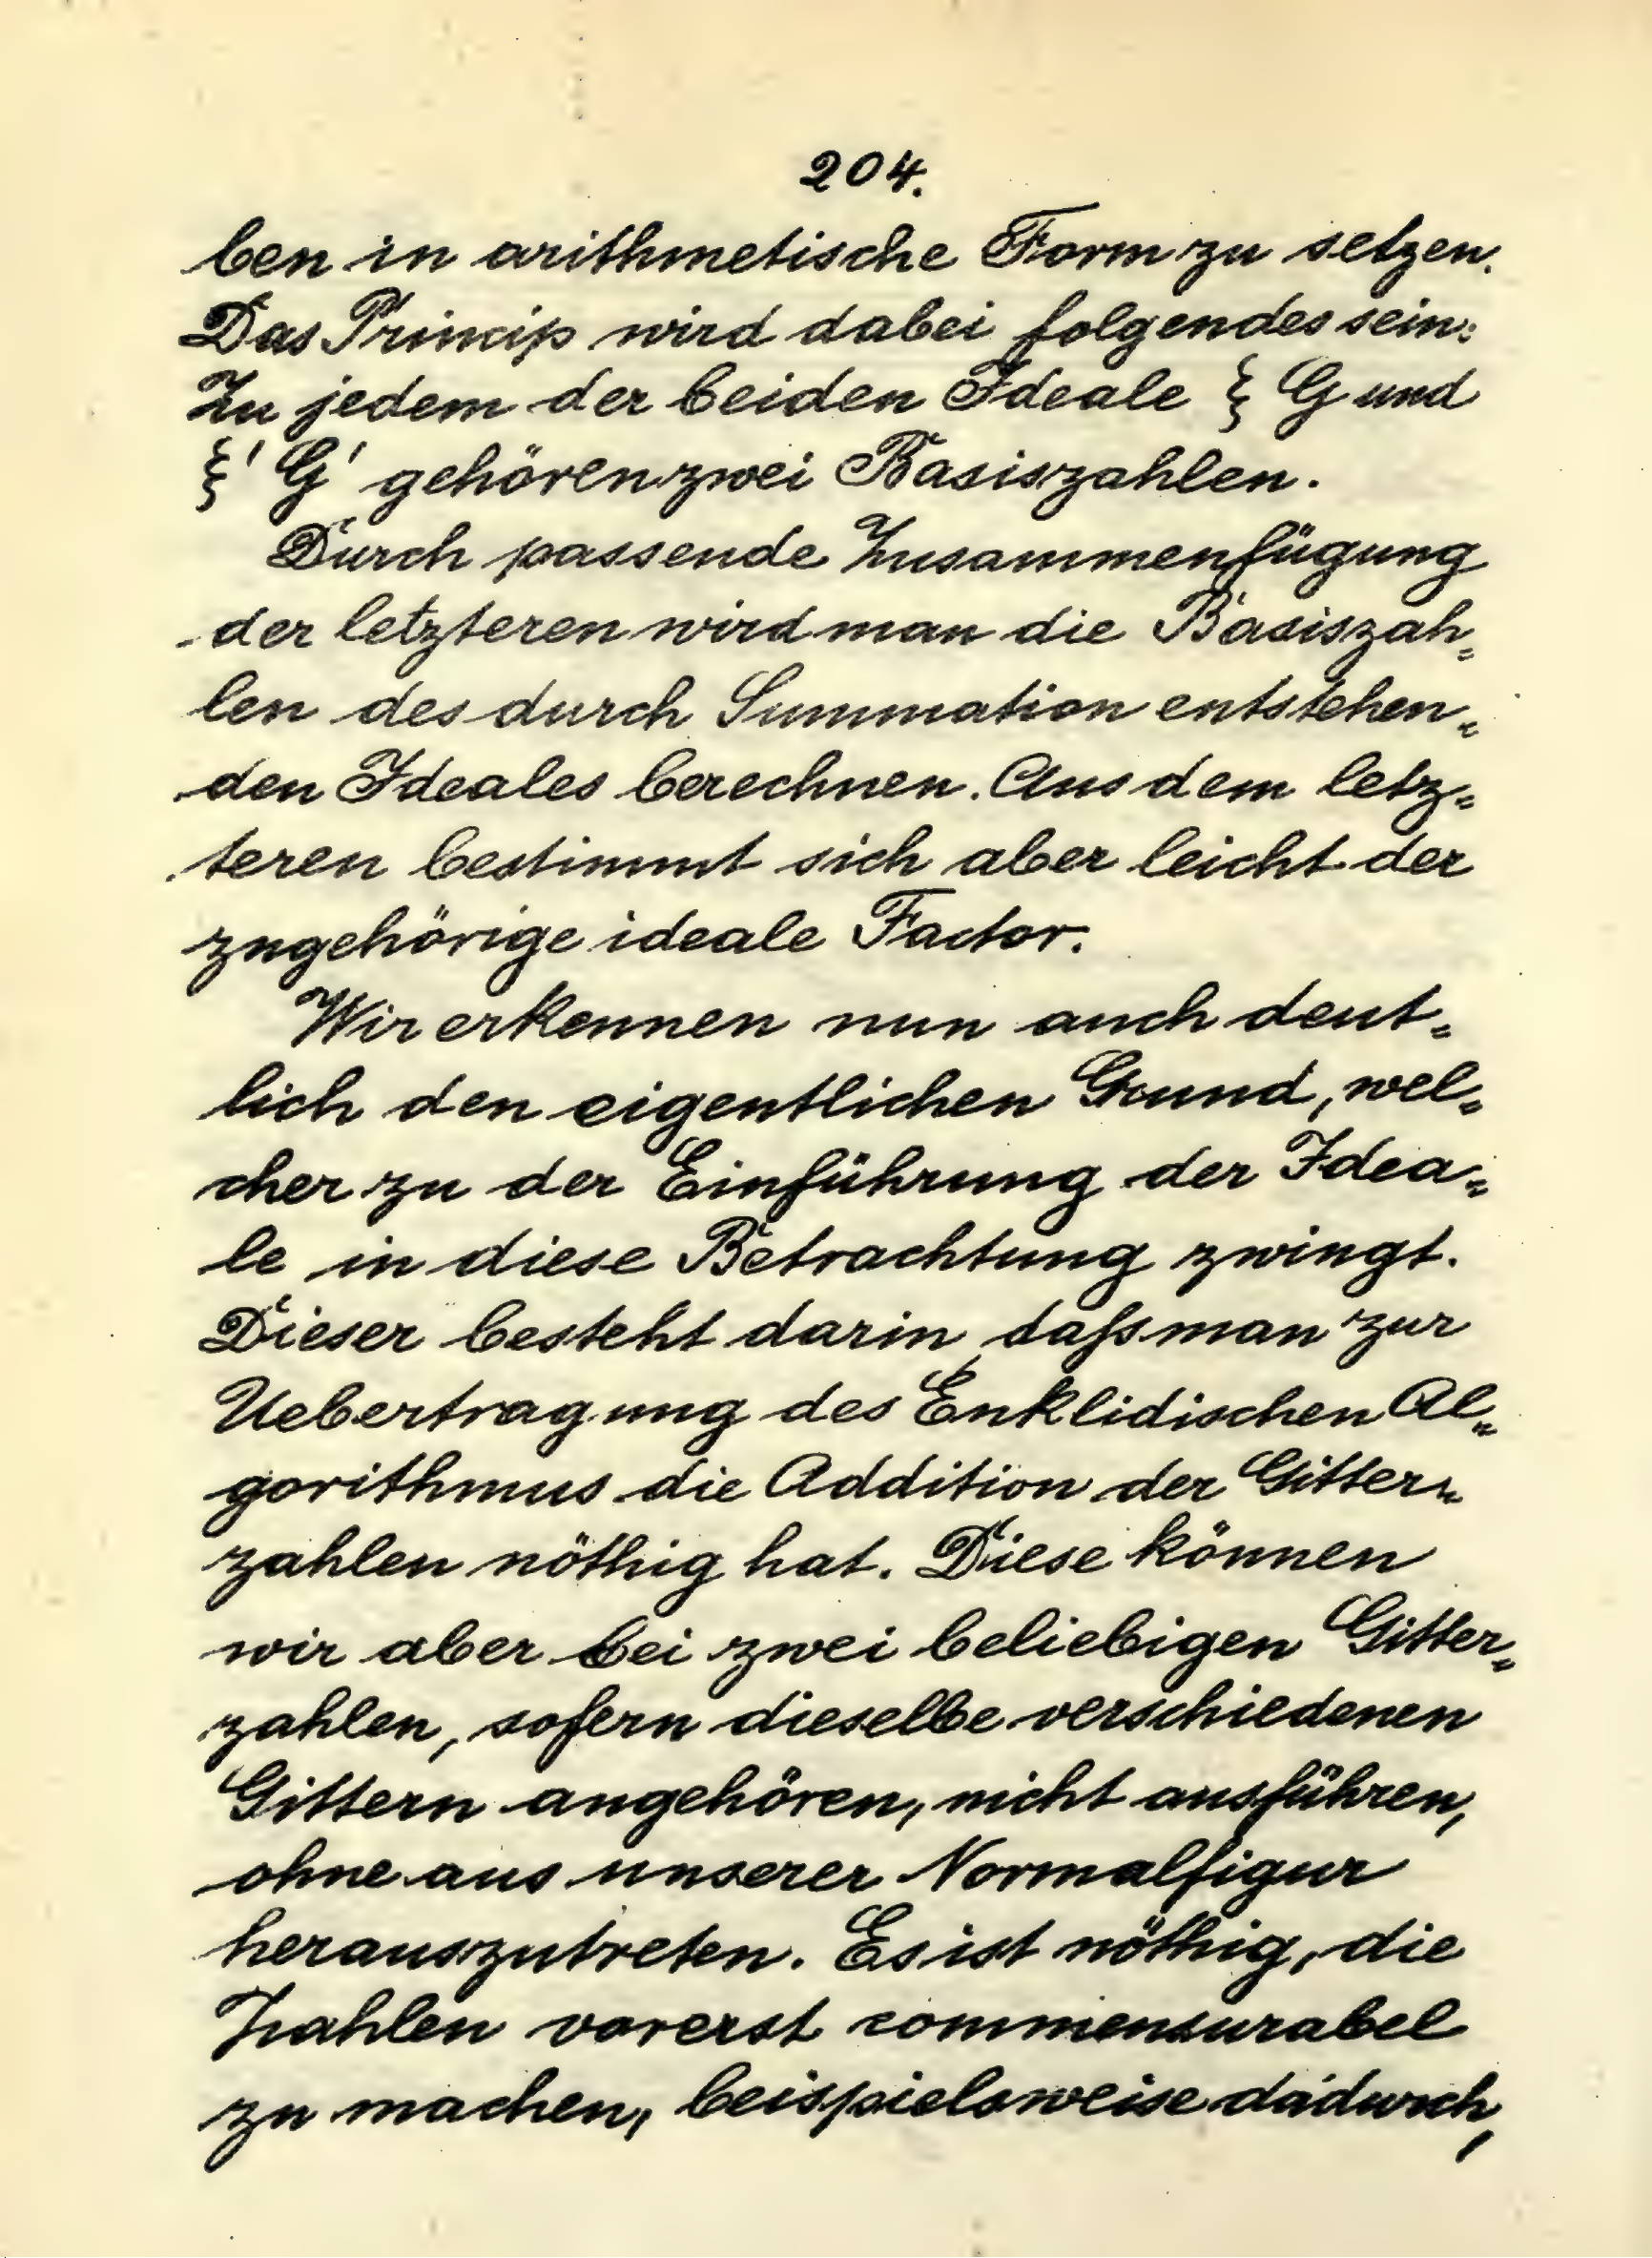 204.
ben in arithmetische Form zu setzen.
Das Princip wird dabei folgendes sein:
Zu jedem der beiden Ideale ξ G und
ξ' G' gehören zwei Basiszahlen.
Durch passende Zusammenfügung
der letzteren wird man die Basiszah-
len des durch Summation entstehen-
den Ideales berechnen. Aus dem letz-
teren bestimmt sich aber leicht der
zugehörige ideale Factor.
Wir erkennen nun auch deut-
lich den eigentlichen Grund, wel-
cher zu der Einführung der Idea-
le in diese Betrachtung zwingt.
Dieser besteht darin, dass man zur
Uebertragung des Euklidischen Al-
gorithmus die Addition der Gitter-
zahlen nöthig hat. Diese können
wir aber bei zwei beliebigen Gitter-
zahlen, sofern dieselbe verschiedenen
Gittern angehören, nicht ausführen,
ohne aus unserer Normalfigur
herauszutreten. Es ist nöthig, die
Zahlen vorerst commensurabel
zu machen, beispielsweise dadurch,